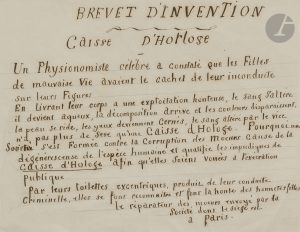 BREVET D'INVENTION
CAISSE D'HORLOGE
Un Physionomiste célèbre a constaté que les Filles
de mauvaise Vie avaient le cachet de leur inconduite
sur leurs Figures
En livrant leur corps a une exploitation honteuse, le sang s'altère
il devient aqueux, la décomposition arrive et les couleurs disparaissent,
la peau se ride, les yeux deviennent Cernés, le sang altéré par le vice
n'a pas plus de Sève qu'une Caisse d'Hologe. Pourquoi une
Société s'est Formée contre la Corruption des Moeurs Cause de la
dégénérescense de l'espèce humaine et qualifie les impudiques de
Caisse d'Hologe afin qu'elles Soient Vouées a l'exécration
Publique
Par leurs toilettes excentriques, produit de leur conduite
Criminelle, elles se font reconnaître et font la honte des honnêtes filles
le réparateur des moeurs envoyé par la
Société dont le siège est
a Paris.